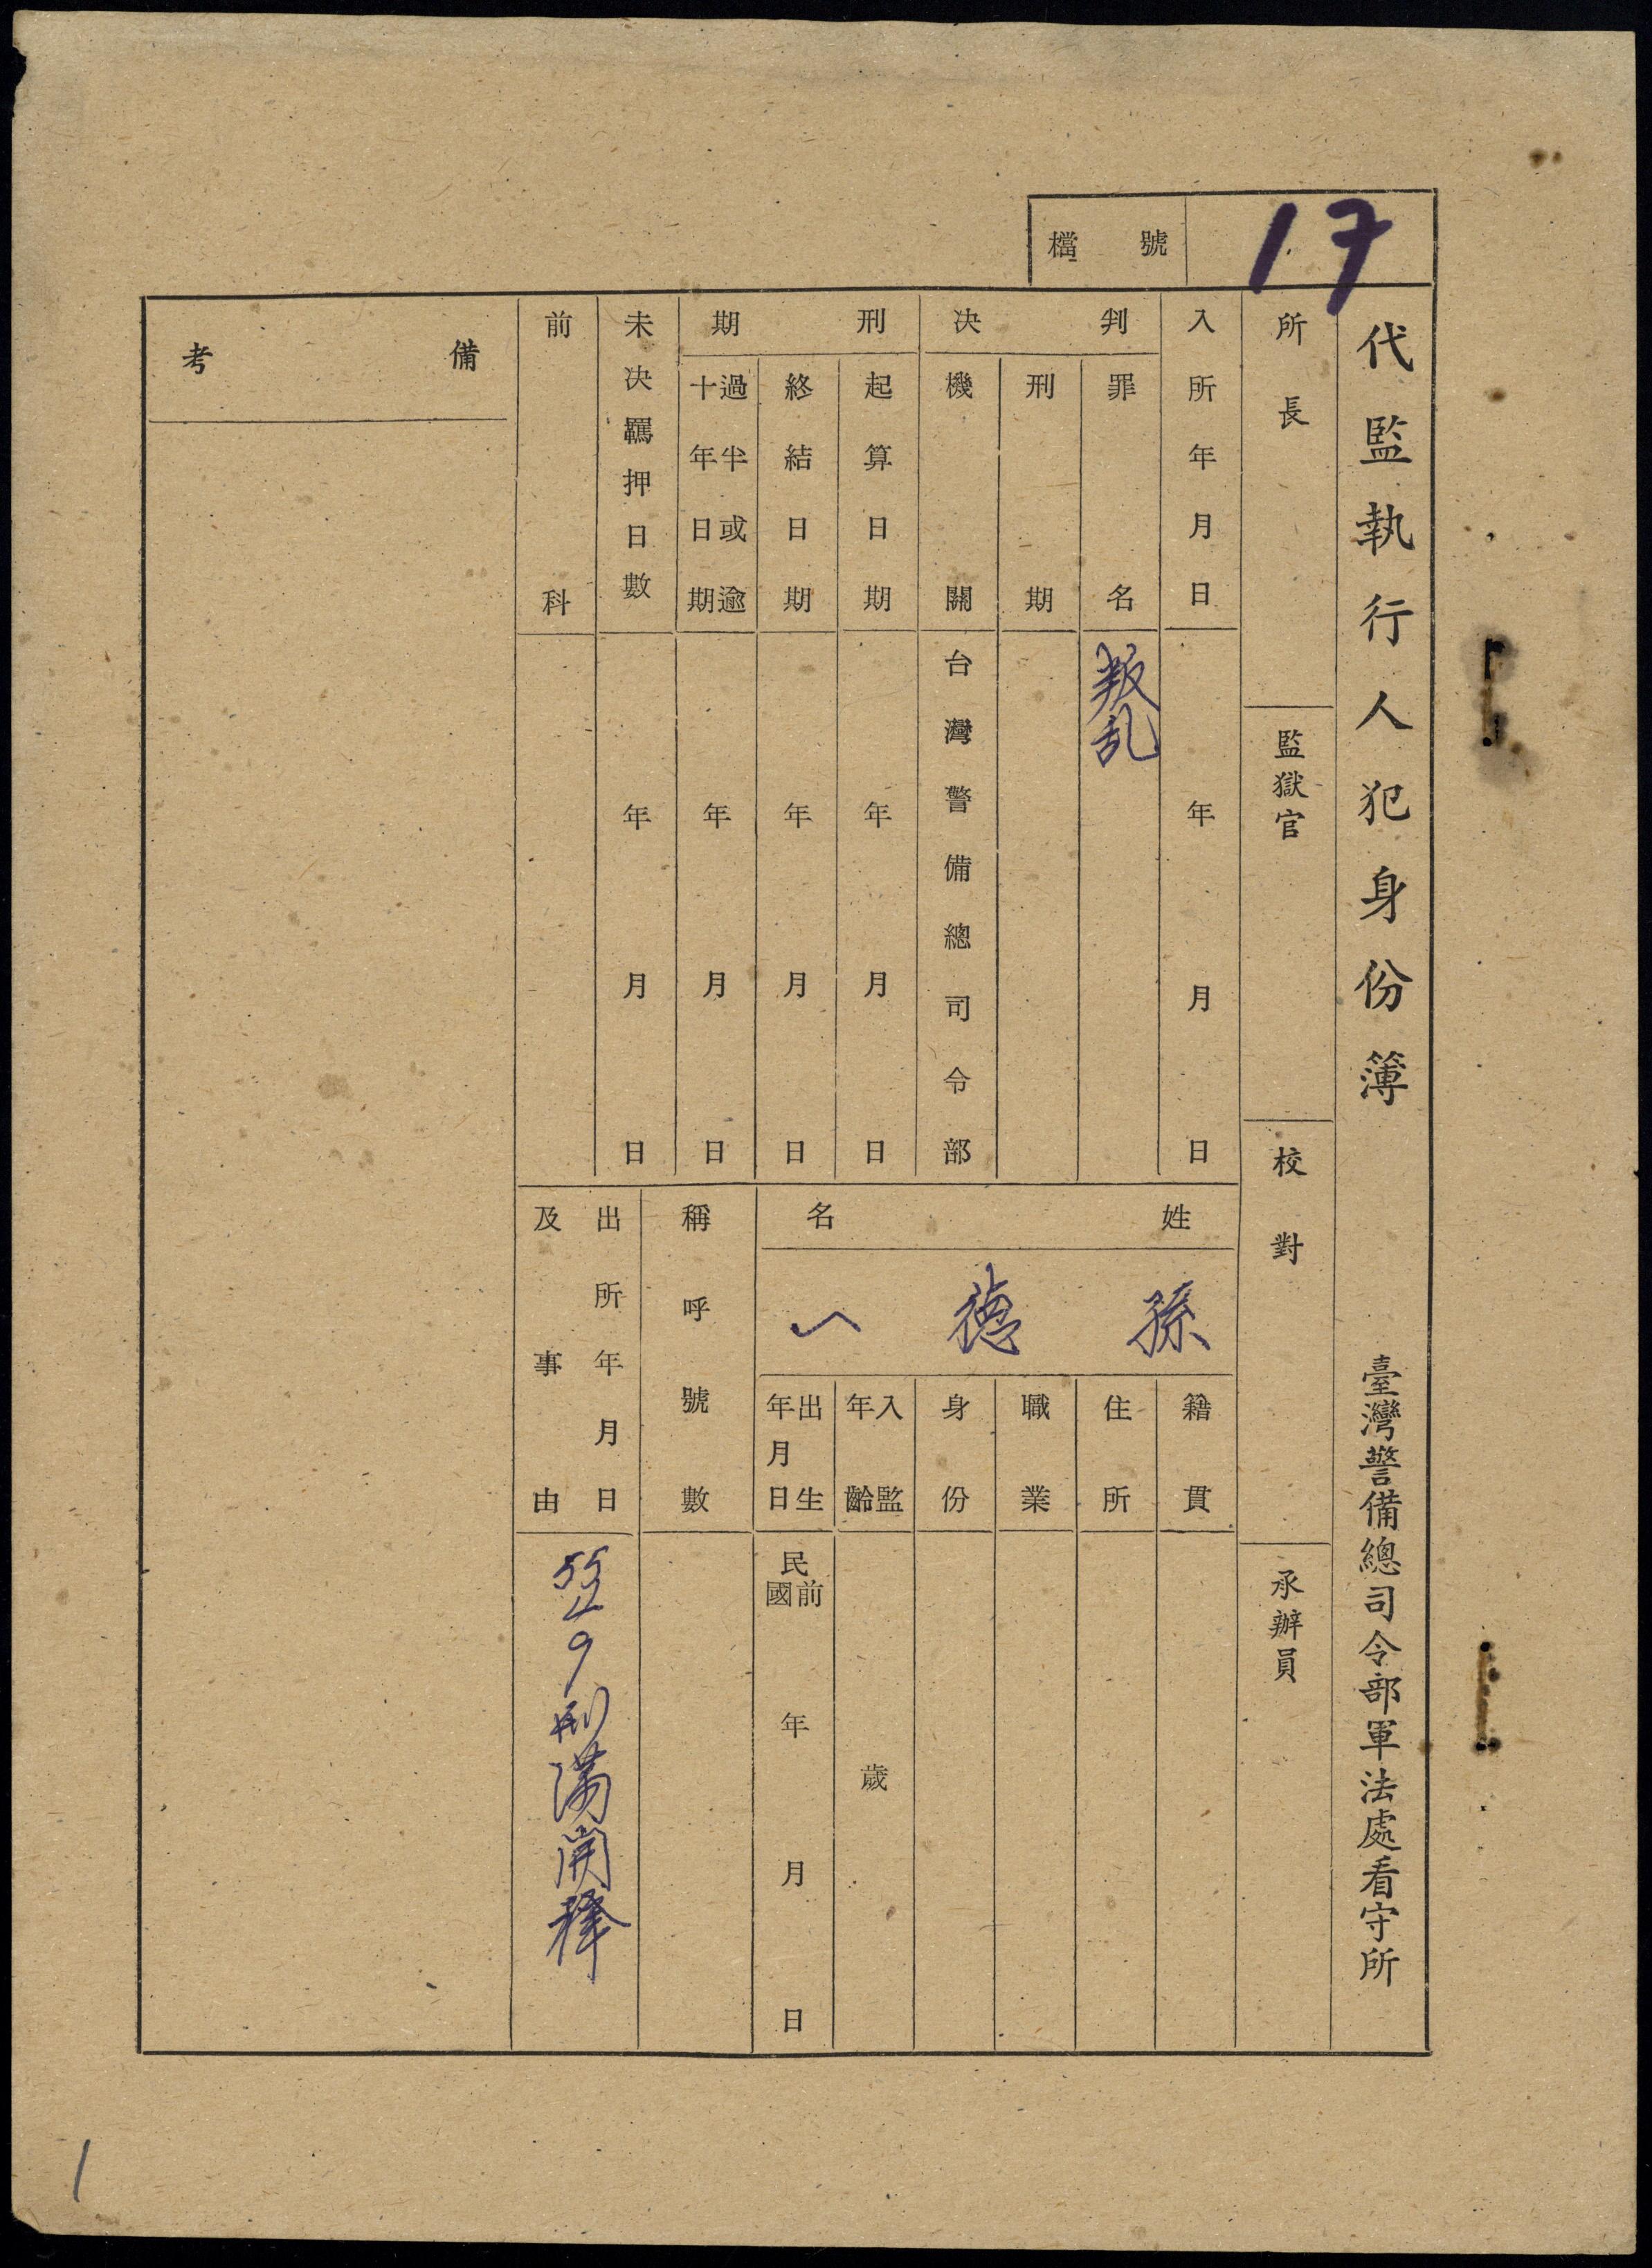 檔號 17
代監執行人犯身份簿 臺灣警備總司令部軍法處看守所
所長
監獄官
校對
承辦員
入所年月日 年 月 日
判決
罪名 叛乱
刑期
機關 台灣警備總司令部
刑期
起算日期 年 月 日
終結日期 年 月 日
過半或逾十年日期 年 月 日
未決羈押日數 年 月 日
前科
姓名
孫德一
籍貫
住所
職業
身份
入監年齡 歲
出生年月日 民國前 年 月 日
稱呼號數
出所年月日及事由 9 刑滿開釋
備考
1